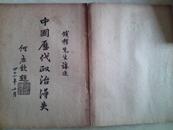 錢穆先生講述
中國歷代政治得失
何應欽題